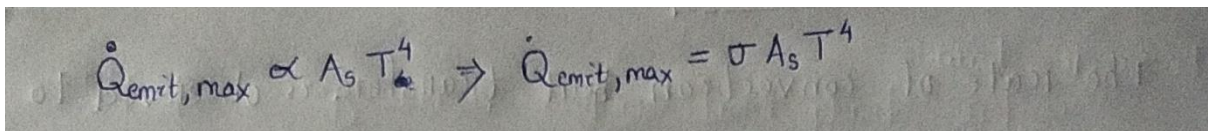 Q̇emit, max ∝ As T⁴ ⇒ Q̇emit, max = σ As T⁴